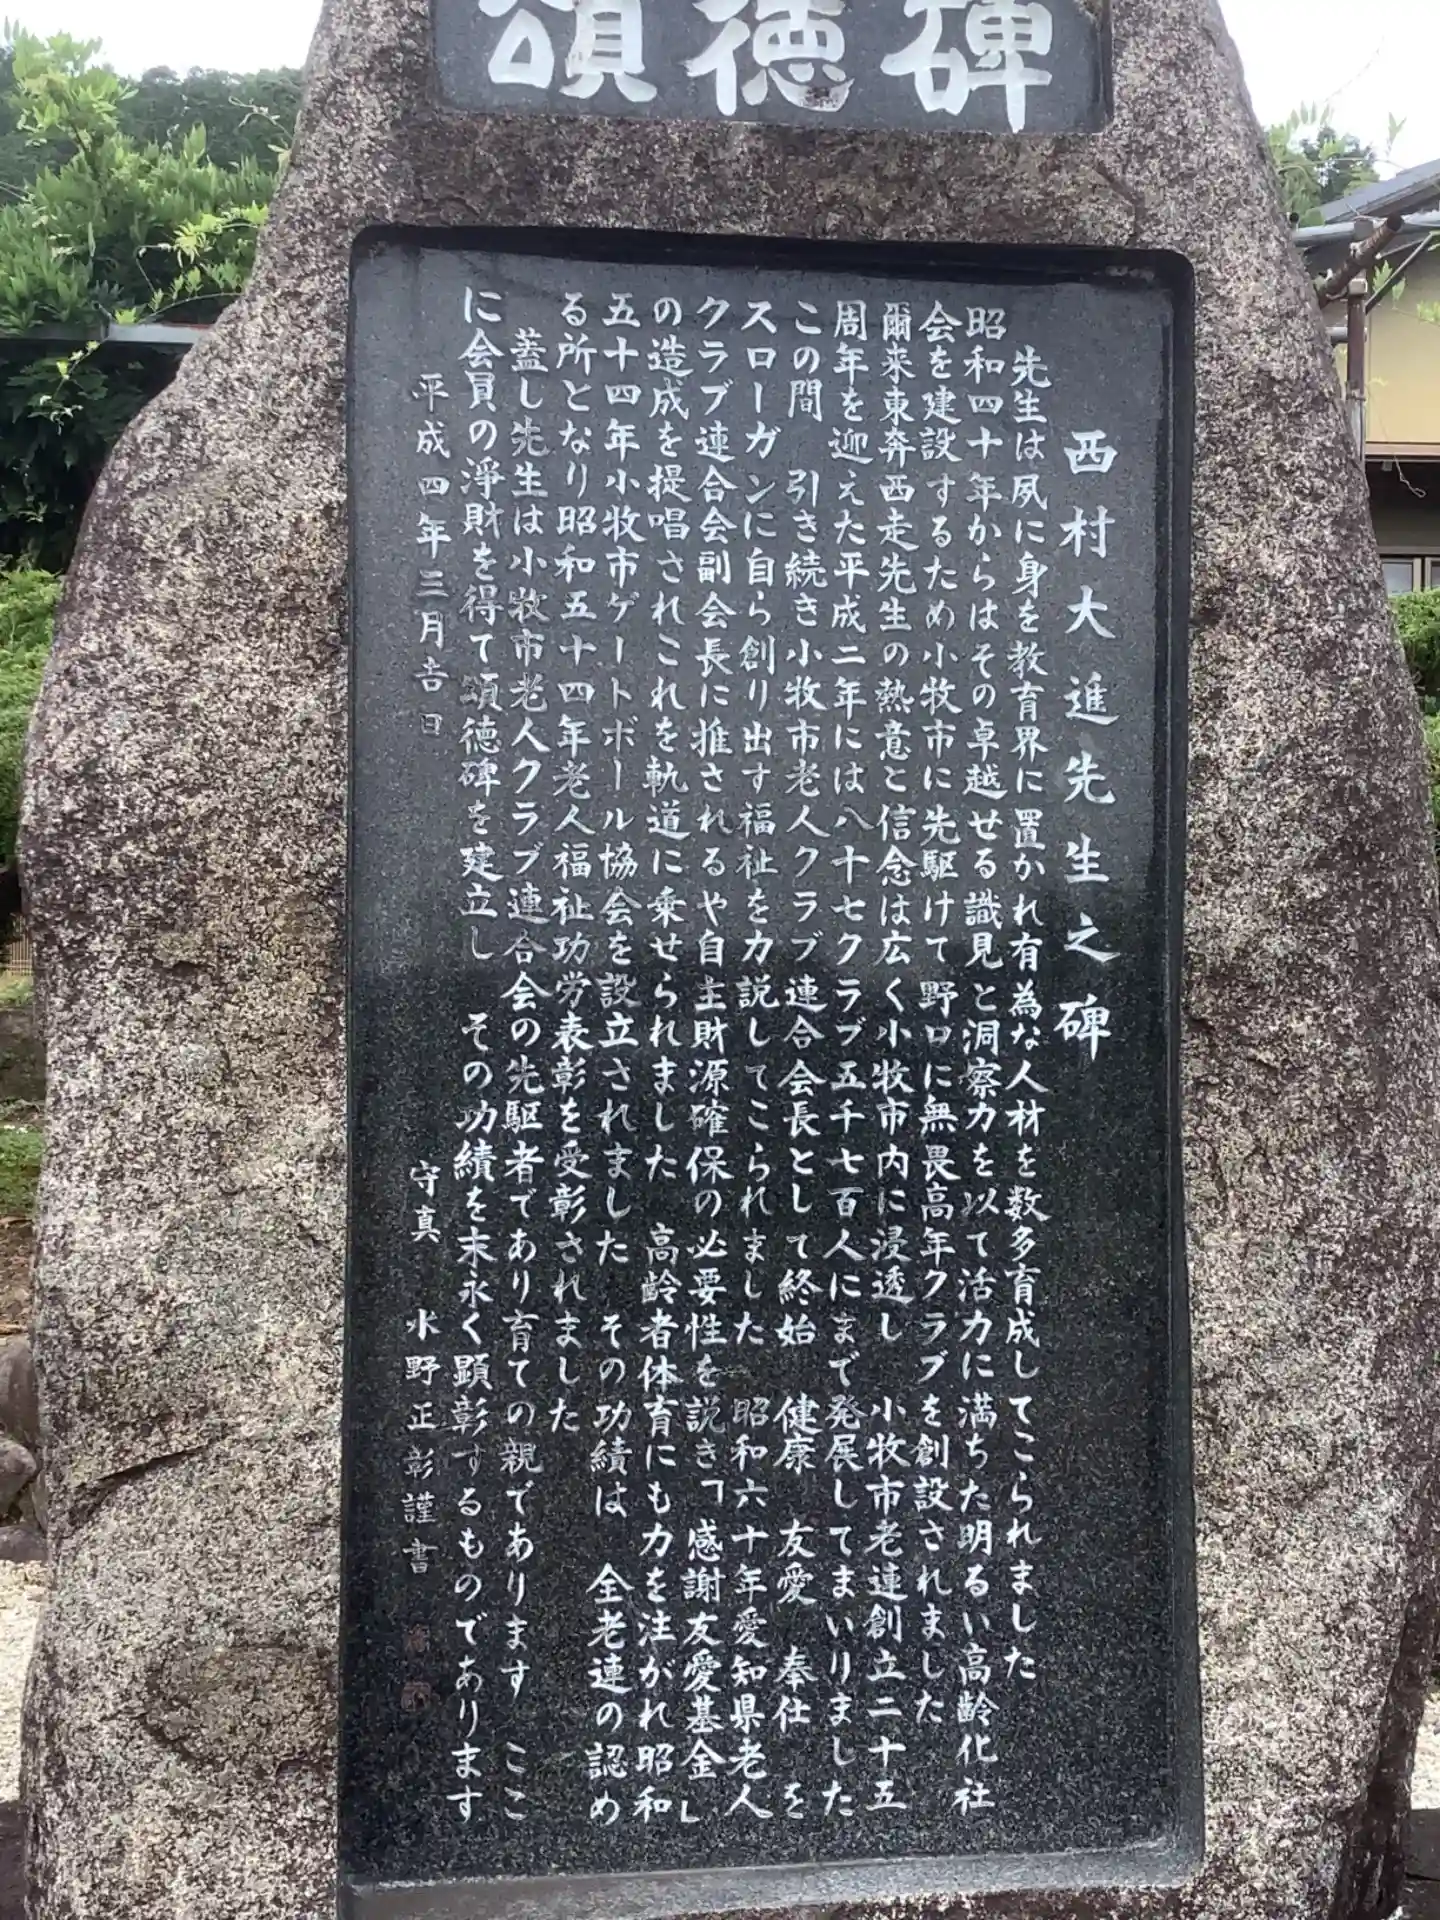 頌徳碑
西村大進先生之碑
先生は夙に身を教育界に置かれ有為な人材を数多育成してこられました
昭和四十年からはその卓越せる識見と洞察力を以て活力に満ちた明るい高齢化社
会を建設するため小牧市に先駆けて野口に無畏高年クラブを創設されました
爾来東奔西走先生の熱意と信念は広く小牧市内に浸透し 小牧市老連創立二十五
周年を迎えた平成二年には八十七クラブ五千七百人にまで発展してまいりました
この間 引き続き小牧市老人クラブ連合会長として終始 健康 友愛 奉仕 を
スローガンに自ら創り出す福祉を力説してこられました 昭和六十年愛知県老人
クラブ連合会副会長に推されるや自主財源確保の必要性を説き「感謝友愛基金」
の造成を提唱されこれを軌道に乗せられました 高齢者体育にも力を注がれ昭和
五十四年小牧市ゲートボール協会を設立されました その功績は 全老連の認め
る所となり昭和五十四年老人福祉功労表彰を受彰されました
蓋し先生は小牧市老人クラブ連合会の先駆者であり育ての親であります ここ
に会員の淨財を得て頌徳碑を建立し その功績を末永く顕彰するものであります
平成四年三月吉日 守真 水野正彰謹書